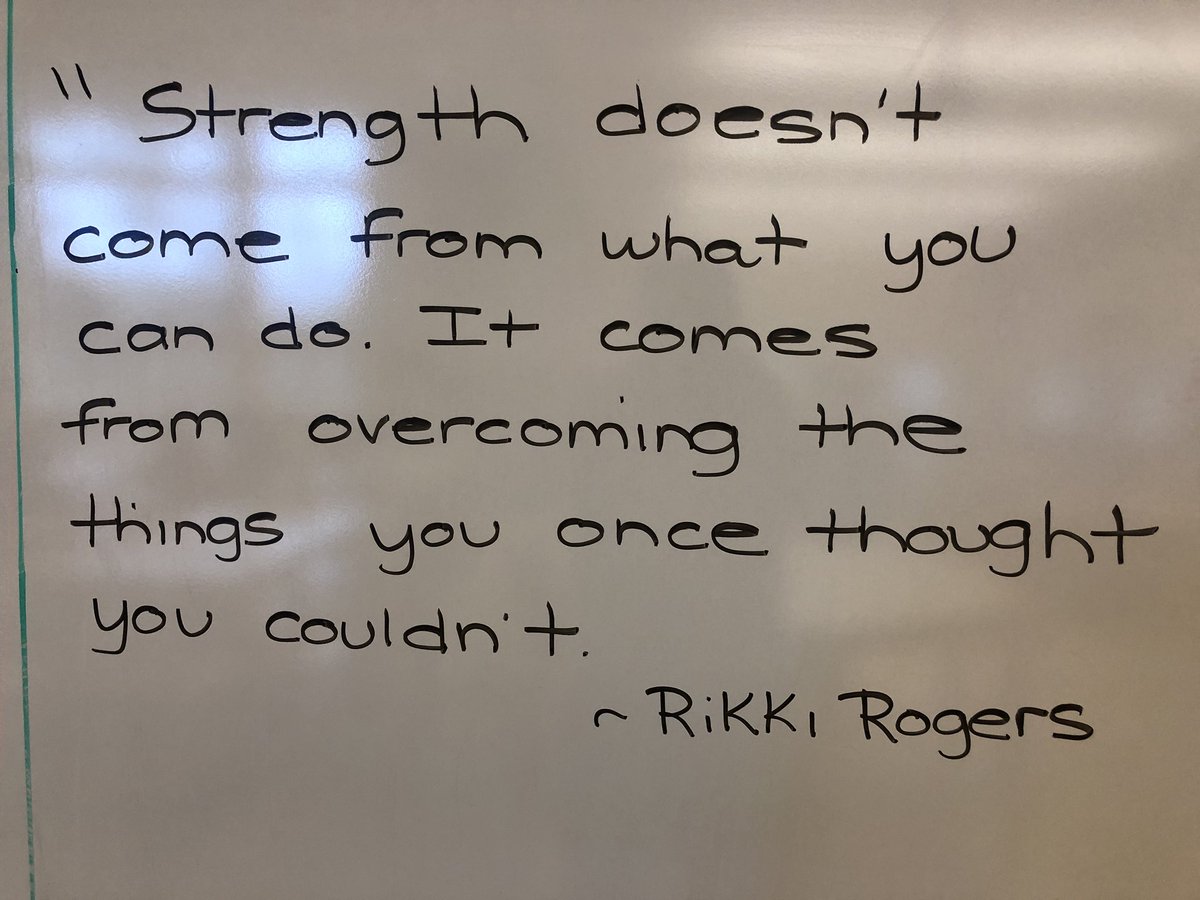 " Strength doesn't
come from what you
can do. It comes
from overcoming the
things you once thought
you couldn't.
~ Rikki Rogers